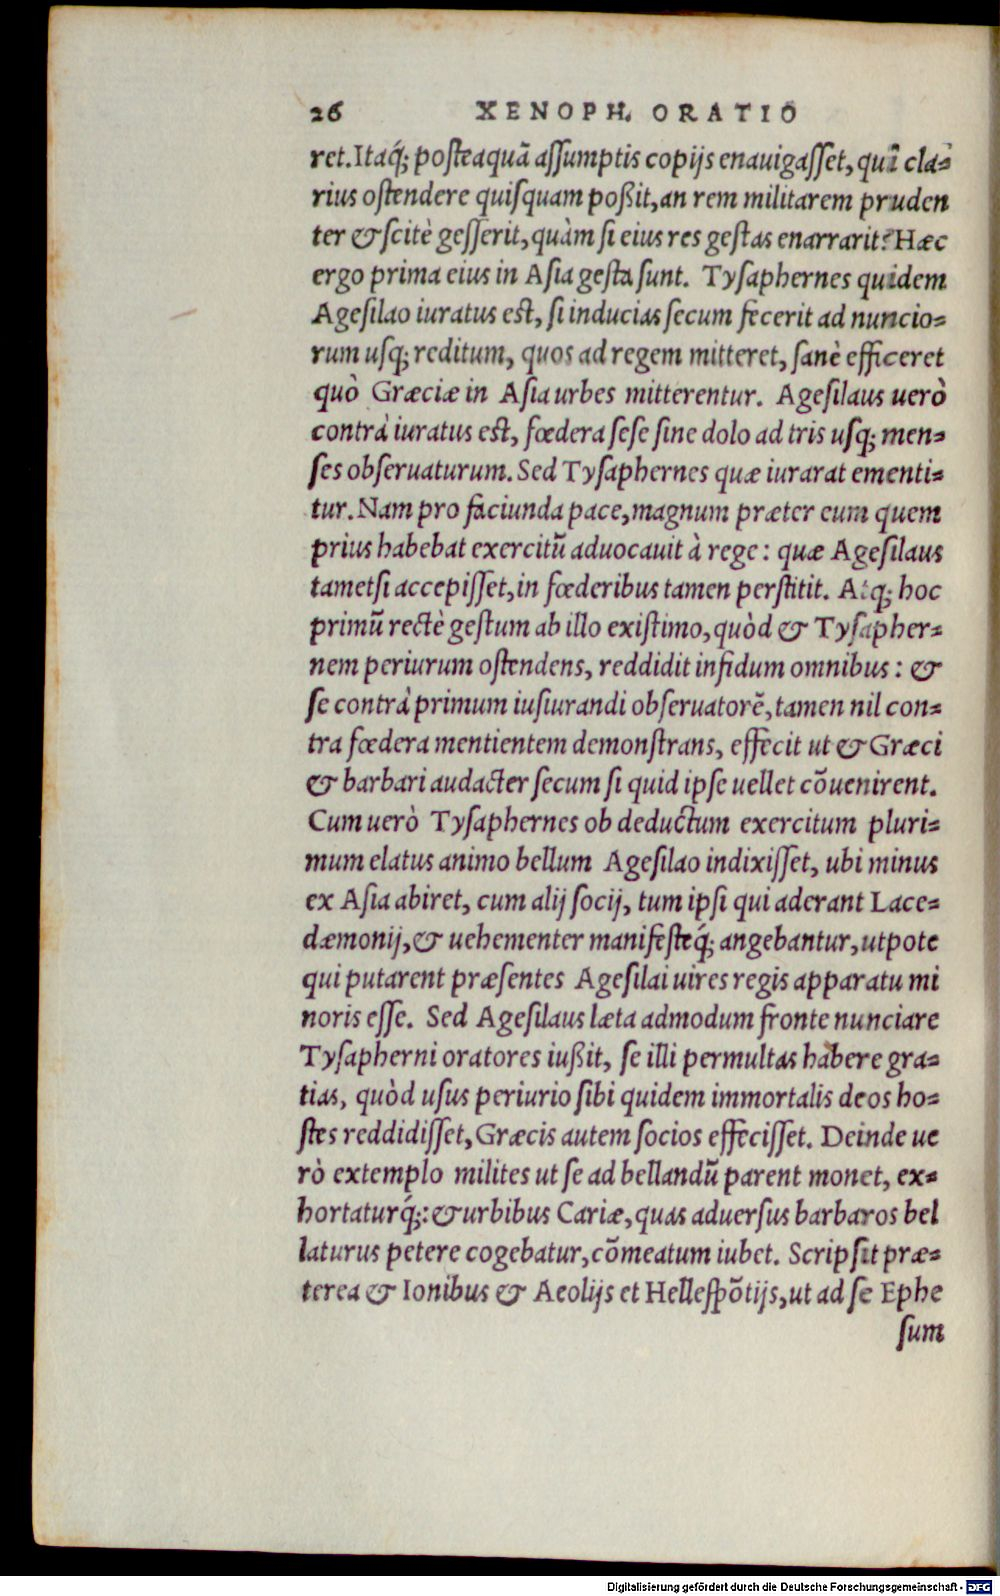 26 XENOPH. ORATIO
ret. Itaq́; posteaquã assumptis copijs enauigasset, quî cla-
rius ostendere quisquam poßit, an rem militarem pruden
ter & scitè gesserit, quàm si eius res gestas enarrarit? Hæc
ergo prima eius in Asia gesta sunt. Tysaphernes quidem
Agesilao iuratus est, si inducias secum fecerit ad nuncio-
rum usq; reditum, quos ad regem mitteret, sanè efficeret
quò Græciæ in Asia urbes mitterentur. Agesilaus uerò
contrà iuratus est, fœdera sese sine dolo ad tris usq; men-
ses obseruaturum. Sed Tysaphernes quæ iurarat ementi-
tur. Nam pro faciunda pace, magnum præter eum quem
prius habebat exercitũ aduocauit à rege: quæ Agesilaus
tametsi accepisset, in fœderibus tamen perstitit. Atq; hoc
primũ rectè gestum ab illo existimo, quòd & Tysapher-
nem periurum ostendens, reddidit infidum omnibus: &
se contrà primum iusiurandi obseruatorẽ, tamen nil con-
tra fœdera mentientem demonstrans, effecit ut & Græci
& barbari audacter secum si quid ipse uellet cõuenirent.
Cum uerò Tysaphernes ob deductum exercitum pluri-
mum elatus animo bellum Agesilao indixisset, ubi minus
ex Asia abiret, cum alij socij, tum ipsi qui aderant Lace-
dæmonij, & uehementer manifesteq́; angebantur, utpote
qui putarent præsentes Agesilai uires regis apparatu mi
noris esse. Sed Agesilaus læta admodum fronte nunciare
Tysapherni oratores iußit, se illi permultas habere gra-
tias, quòd usus periurio sibi quidem immortalis deos ho-
stes reddidisset, Græcis autem socios effecisset. Deinde ue
rò extemplo milites ut se ad bellandũ parent monet, ex-
hortaturq́;: & urbibus Cariæ, quas aduersus barbaros bel
laturus petere cogebatur, cõmeatum iubet. Scripsit præ-
terea & Ionibus & Aeolijs et Hellespõtijs, ut ad se Ephe
sum
Digitalisierung gefördert durch die Deutsche Forschungsgemeinschaft - DFG